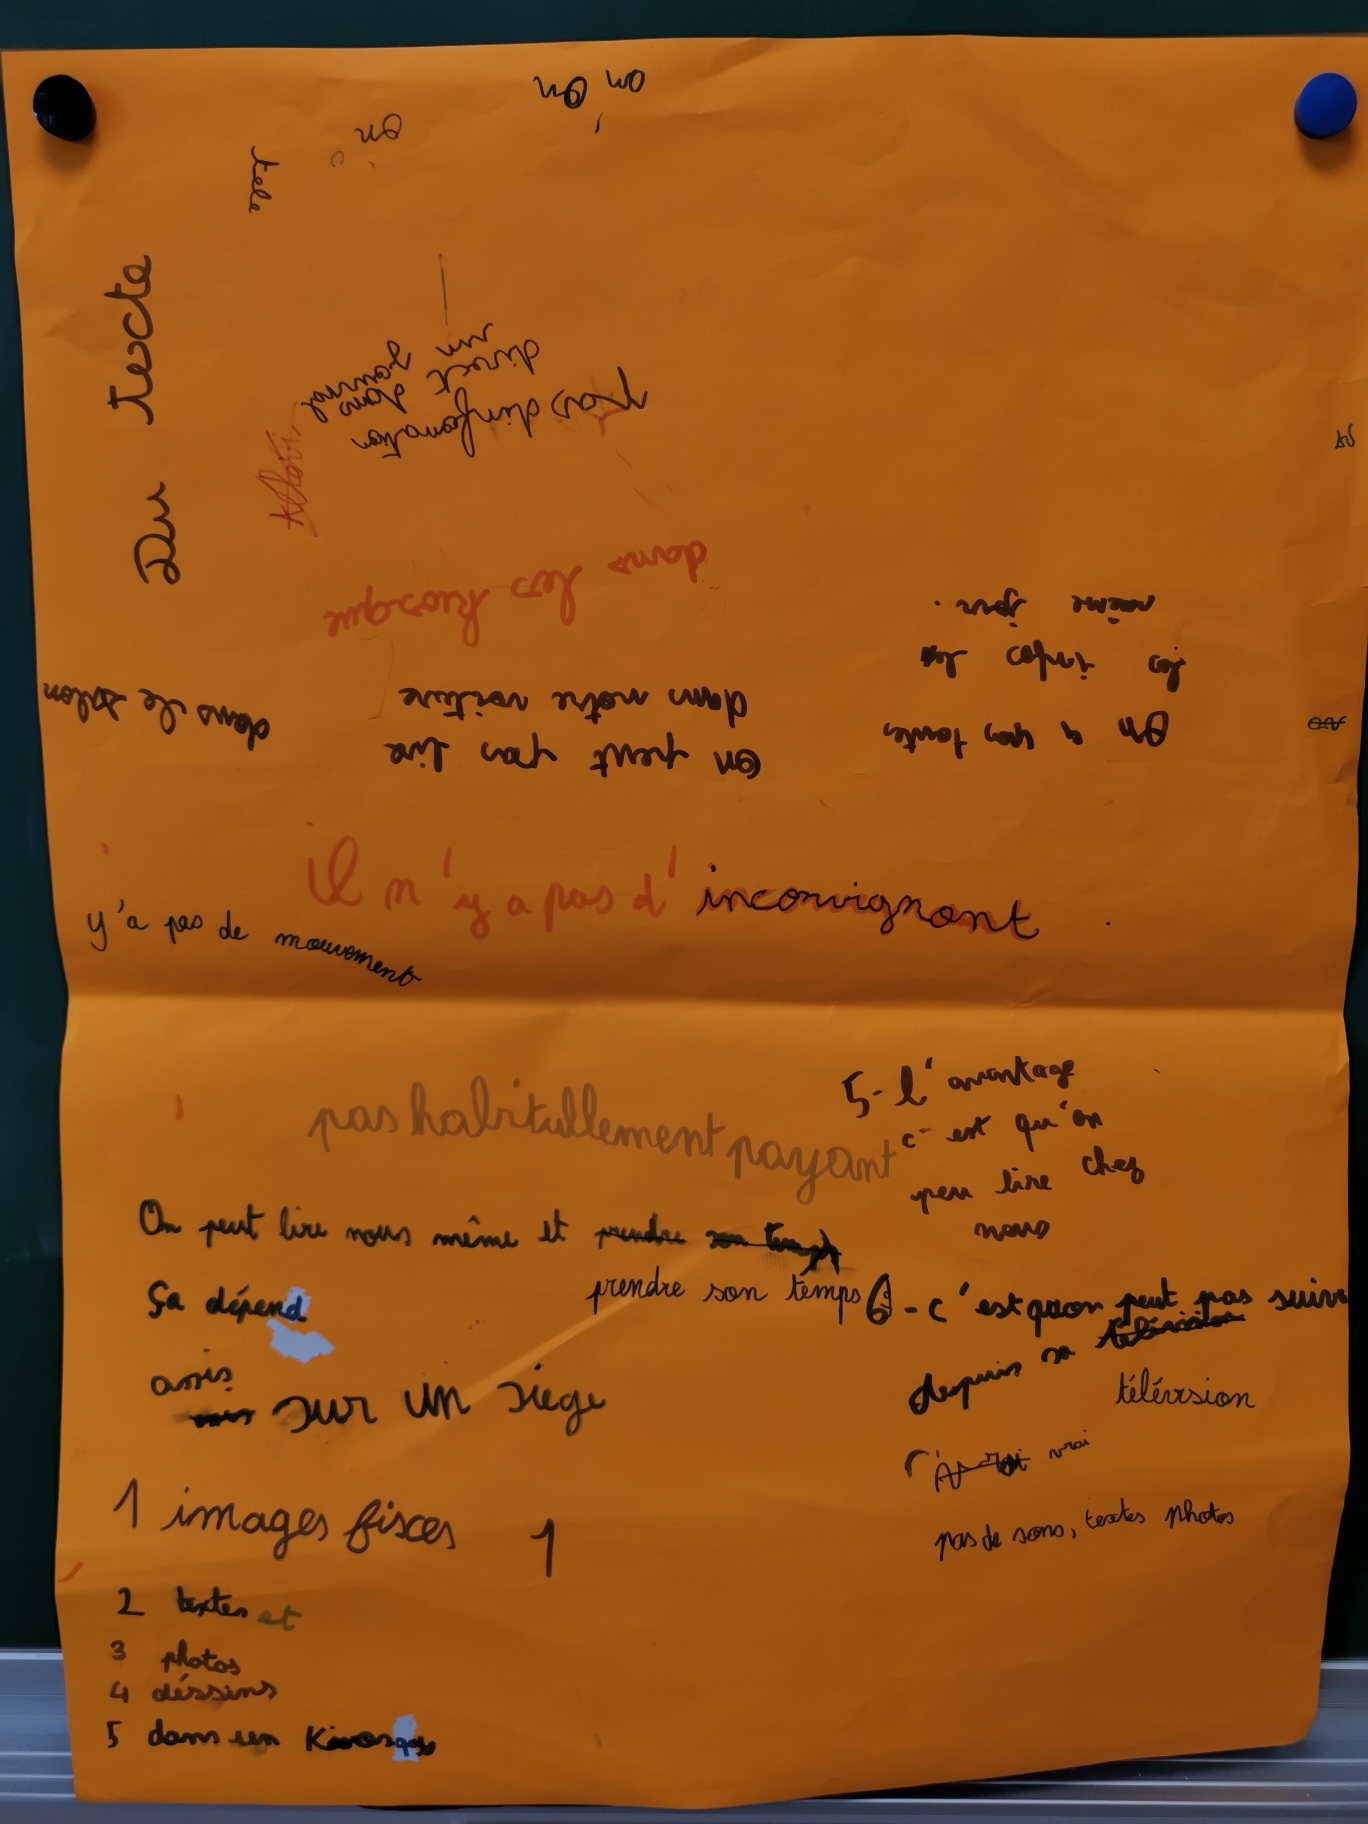 on On
on
on
tele
Du texte
Pas d'information
direct dans
un journal
dans les kiosque
dans le salon
On peut pas lire
dans notre voiture
On a pas toutes
les infos le
même jour.
Il n'y a pas d'inconvignant.
y'a pas de mouvement
pas habitullement payant
5- l'avantage
c'est qu'on
peu lire chez
nous
On peut lire nous même et prendre son temps
prendre son temps
Ça dépend
assis
sur un siège
6 - c'est quon peut pas suivre
depuis sa télévision
télévision
vrai
pas de sons, textes photos
1 images fisces 1
2 textes et
3 photos
4 déssins
5 dans un Kiosque